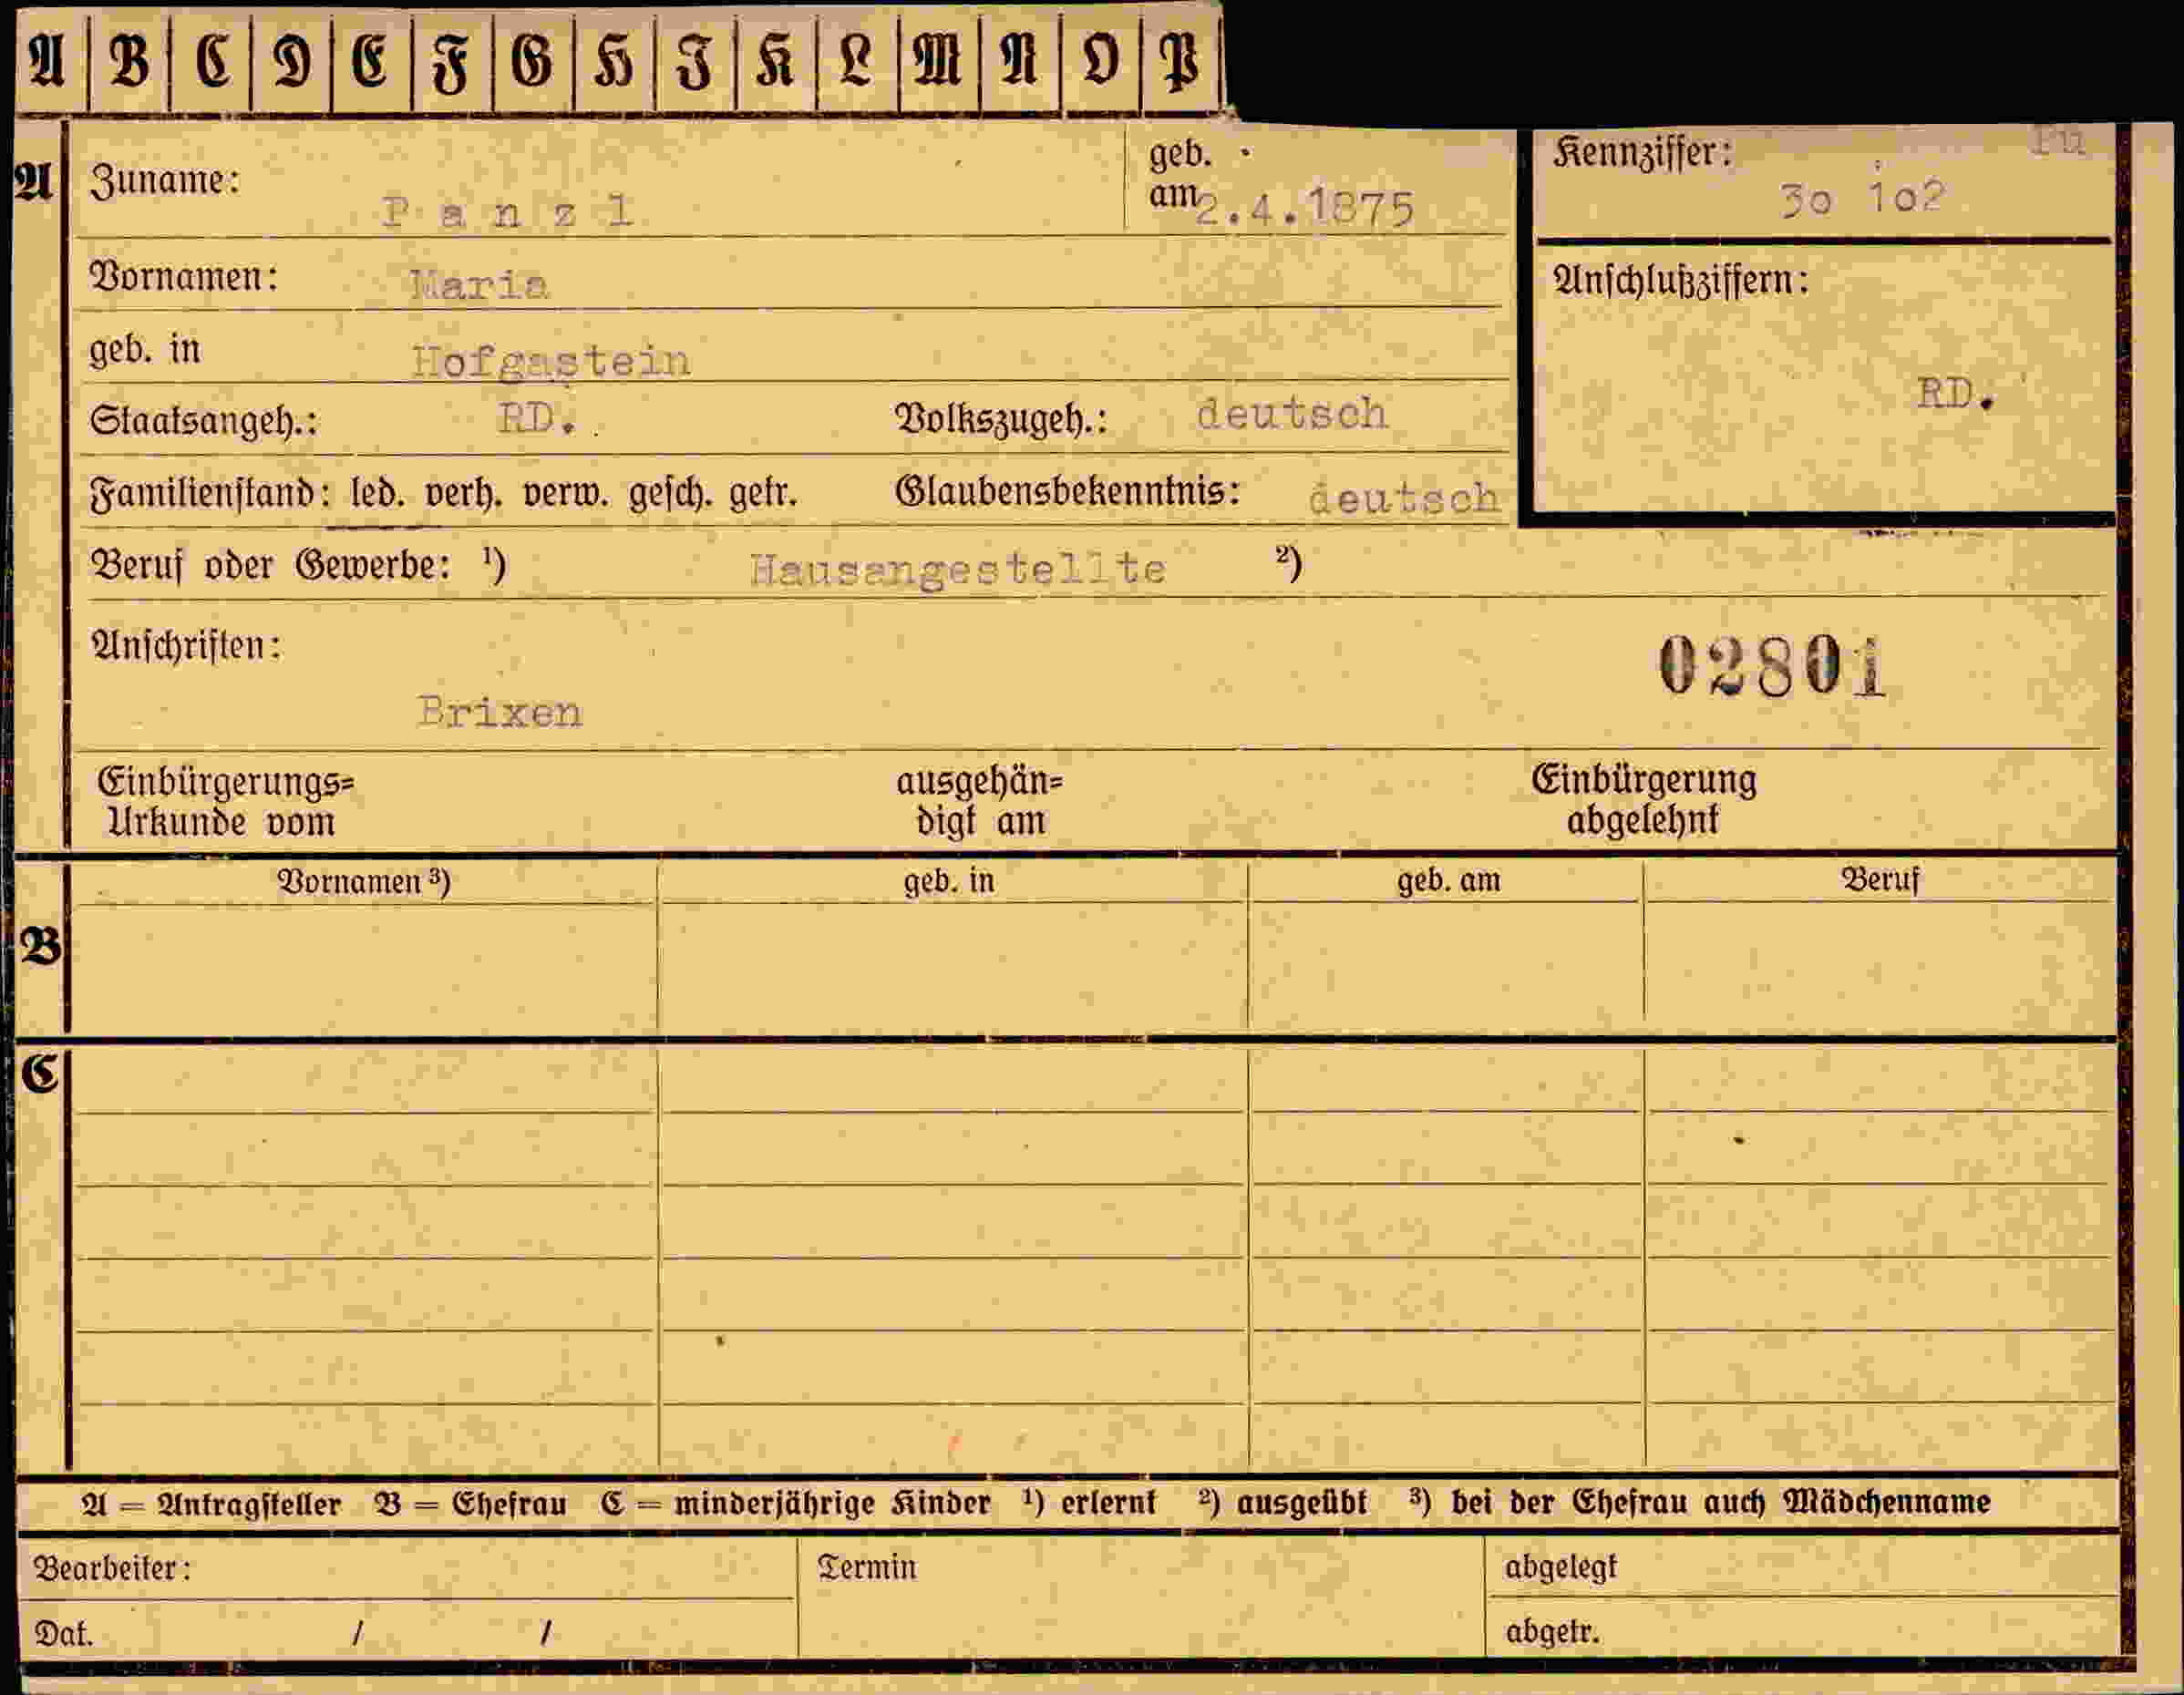 A B C D E F G H I K L M N O P
A Zuname: Panzl geb. am 2.4.1875
Kennziffer: 3o 1o2
Vornamen: Maria
Anschlußziffern:
geb. in Hofgastein
RD.
Staatsangeh.: RD. Volkszugeh.: deutsch
Familienstand: led. verh. verw. gesch. getr. Glaubensbekenntnis: deutsch
Beruf oder Gewerbe: ¹) Hausangestellte ²)
Anschriften:
02801
Brixen
Einbürgerungs= ausgehän= Einbürgerung
Urkunde vom digt am abgelehnt
Vornamen ³) geb. in geb. am Beruf
B
C
A = Antragsteller B = Ehefrau C = minderjährige Kinder ¹) erlernt ²) ausgeübt ³) bei der Ehefrau auch Mädchenname
Bearbeiter: Termin abgelegt
Dat. / / abgetr.